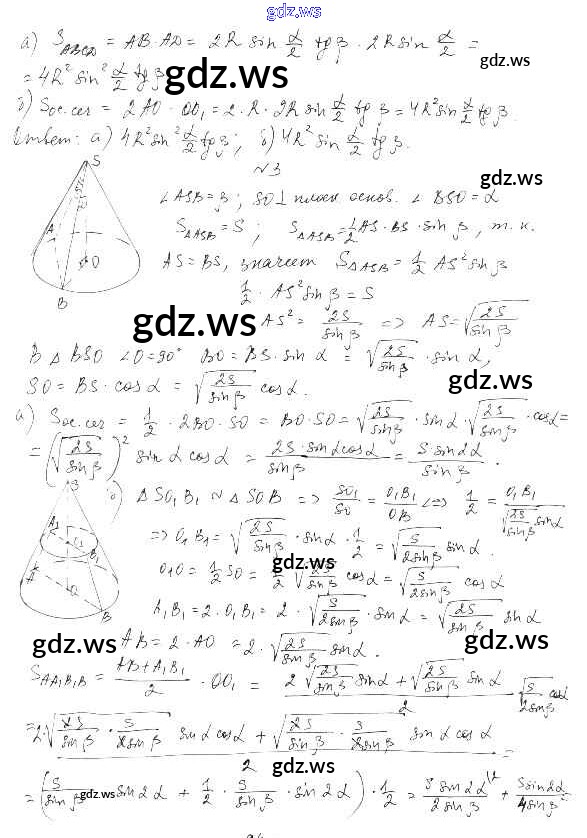 gdz.ws
а) S_ABCD = AB · AD = 2R sin α/2 tg β · 2R sin α/2 =
= 4R² sin² α/2 tg β
gdz.ws
б) Sос.сеч = 2AO · OO₁ = 2 · R · 2R sin α/2 tg β = 4R² sin α/2 tg β.
Ответ: а) 4R² sin² α/2 tg β; б) 4R² sin α/2 tg β.
N3
gdz.ws
S
A
O
B
∠ASB = β; SO ⊥ плоск основ. ∠BSO = α
S△ASB = S; S△ASB = 1/2 AS · BS · sin β, т.к.
AS = BS, значит S△ASB = 1/2 AS² sin β
1/2 · AS² sin β = S
gdz.ws
AS² = 2S/sin β => AS = √(2S/sin β)
В △BSO ∠O = 90° BO = BS · sin α = √(2S/sin β) · sin α,
gdz.ws
SO = BS · cos α = √(2S/sin β) cos α.
а) Sос.сеч = 1/2 · 2BO · SO = BO · SO = √(2S/sin β) · sin α · √(2S/sin β) · cos α =
= (√(2S/sin β))² sin α cos α = 2S · sin α cos α/sin β = S · sin 2α/sin β.
S
A₁
B₁
A
O
B
б) △SO₁B₁ ~ △SOB => SO₁/SO = O₁B₁/OB <=> 1/2 = O₁B₁/(√(2S/sin β) sin α)
=> O₁B₁ = √(2S/sin β) · sin α · 1/2 = √(S/2sin β) sin α.
gdz.ws
O₁O = 1/2 SO = 1/2 √(2S/sin β) cos α = √(S/2sin β) cos α
A₁B₁ = 2 · O₁B₁ = 2 · √(S/2sin β) · sin α = √(2S/sin β) sin α
gdz.ws
gdz.ws
AB = 2 · AO = 2 · √(2S/sin β) sin α.
S_AA₁B₁B = (AB + A₁B₁)/2 · OO₁ = (2√(2S/sin β) sin α + √(2S/sin β) sin α)/2 √(S/2sin β) cos α
gdz.ws
= (2√(2S/sin β · S/2sin β) sin α cos α + √(2S/sin β · S/2sin β) sin α cos α)/2 =
gdz.ws
= (S/sin β · sin 2α + 1/2 · S/sin β · sin 2α) · 1/2 = S sin 2α/2sin β + S sin 2α/4sin β
gdz.ws